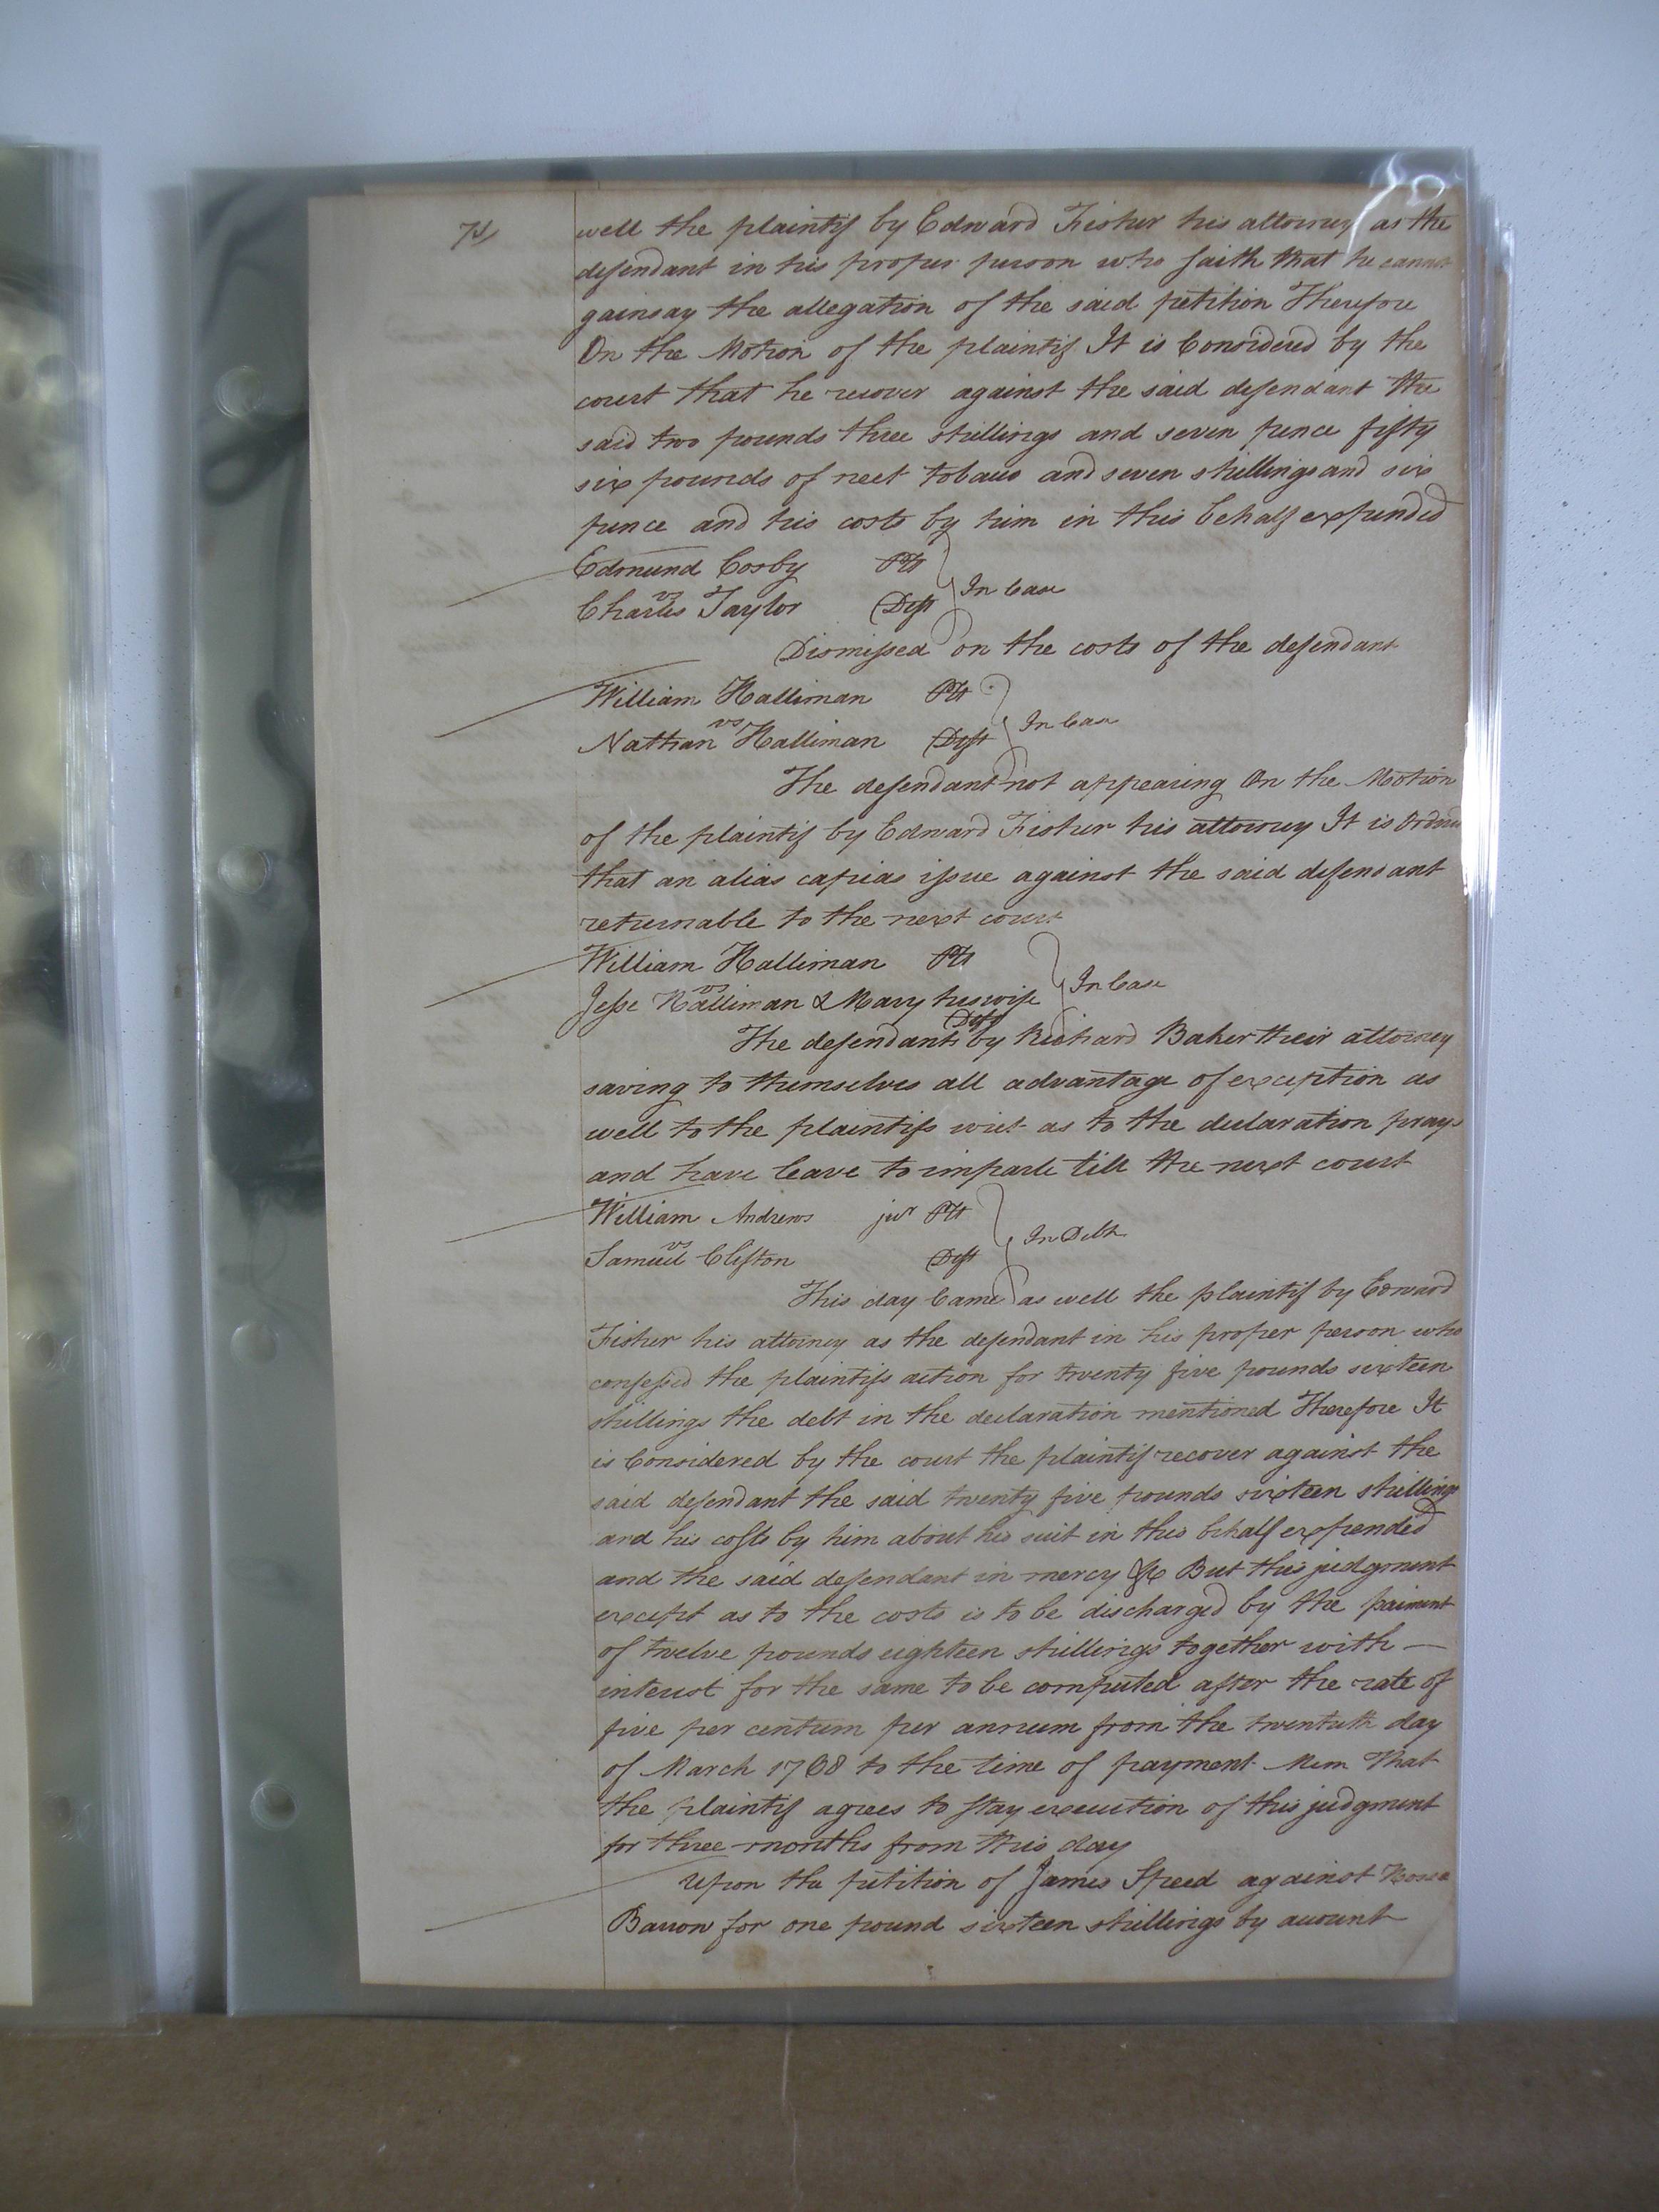 well the plaintif by Edward Fisher his attorney as the
defendant in his proper person who saith that he cannot
gainsay the allegation of the said petition Therefore
On the Motion of the plaintif It is Considered by the
court that he recover against the said defendant the
said two pounds three shillings and seven pence fifty
six pounds of neet tobacco and seven shillings and six
pence and his costs by him in this behalf expended
Edmund Cosby Plt
vs In Case
Charles Taylor Deft
Dismissed on the costs of the defendant
William Halliman Plt
vs In Case
Nathan Halliman Deft
The defendant not appearing On the Motion
of the plaintif by Edward Fisher his attorney It is Ordered
that an alias capias issue against the said defendant
returnable to the next court
William Halliman Plt
vs In Case
Jesse Halliman & Mary his wife
Defts
The defendants by Richard Baker their attorney
saving to themselves all advantage of exception as
well to the plaintifs writ as to the declaration prays
and have leave to imparle till the next court
William Andrews junr Plt
vs In Debt
Samuel Clifton Deft
This day Came as well the plaintif by Edward
Fisher his attorney as the defendant in his proper person who
confessed the plaintifs action for twenty five pounds sixteen
shillings the debt in the declaration mentioned Therefore It
is Considered by the court the plaintif recover against the
said defendant the said twenty five pounds sixteen shillings
and his costs by him about his suit in this behalf expended
and the said defendant in mercy &c But this judgment
except as to the costs is to be discharged by the paiment
of twelve pounds eighteen shillings together with —
interest for the same to be computed after the rate of
five per centum per annum from the twentieth day
of March 1768 to the time of payment Mem That
the plaintif agrees to stay execution of this judgment
for three months from this day
Upon the petition of James Speed against
Barron for one pound sixteen shillings by account